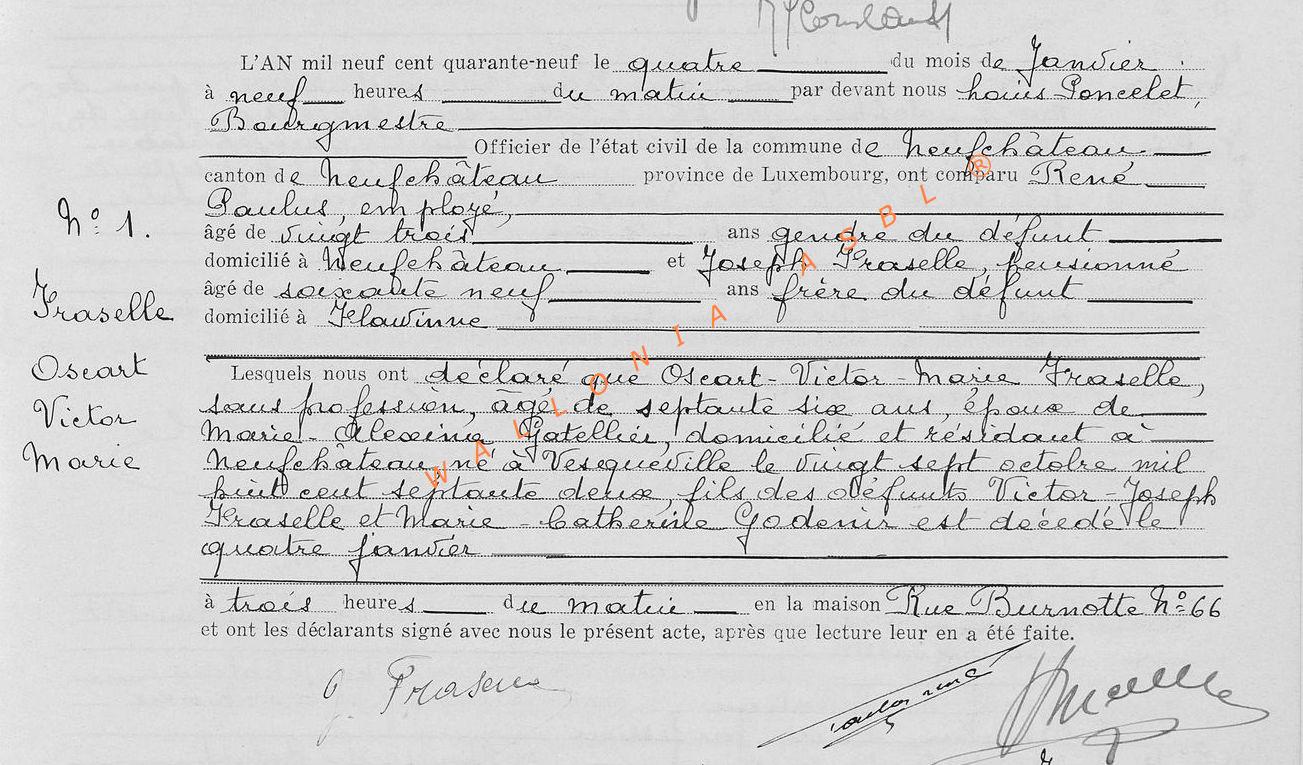 L'AN mil neuf cent quarante-neuf le quatre du mois de Janvier
à neuf heures du matin par devant nous Louis Poncelet,
Bourgmestre
Officier de l'état civil de la commune de Neufchâteau
canton de Neufchâteau province de Luxembourg, ont comparu René
Paulus, employé,
N° 1.
âgé de vingt trois ans gendre du défunt
domicilié à Neufchâteau et Joseph Fraselle, pensionné
âgé de soixante neuf ans frère du défunt
Fraselle
domicilié à Flawinne
Oscart
Victor
Marie
Lesquels nous ont déclaré que Oscart-Victor-Marie Fraselle,
sans profession, âgé de septante six ans, époux de
Marie-Alexina Gatellier, domicilié et résidant à
Neufchâteau, né à Vesqueville le vingt sept octobre mil
huit cent septante deux, fils des défunts Victor-Joseph
Fraselle et Marie-Catherine Godenir est décédé le
quatre janvier
à trois heures du matin en la maison Rue Burnotte N° 66
et ont les déclarants signé avec nous le présent acte, après que lecture leur en a été faite.
WALLONIA ASBL ®